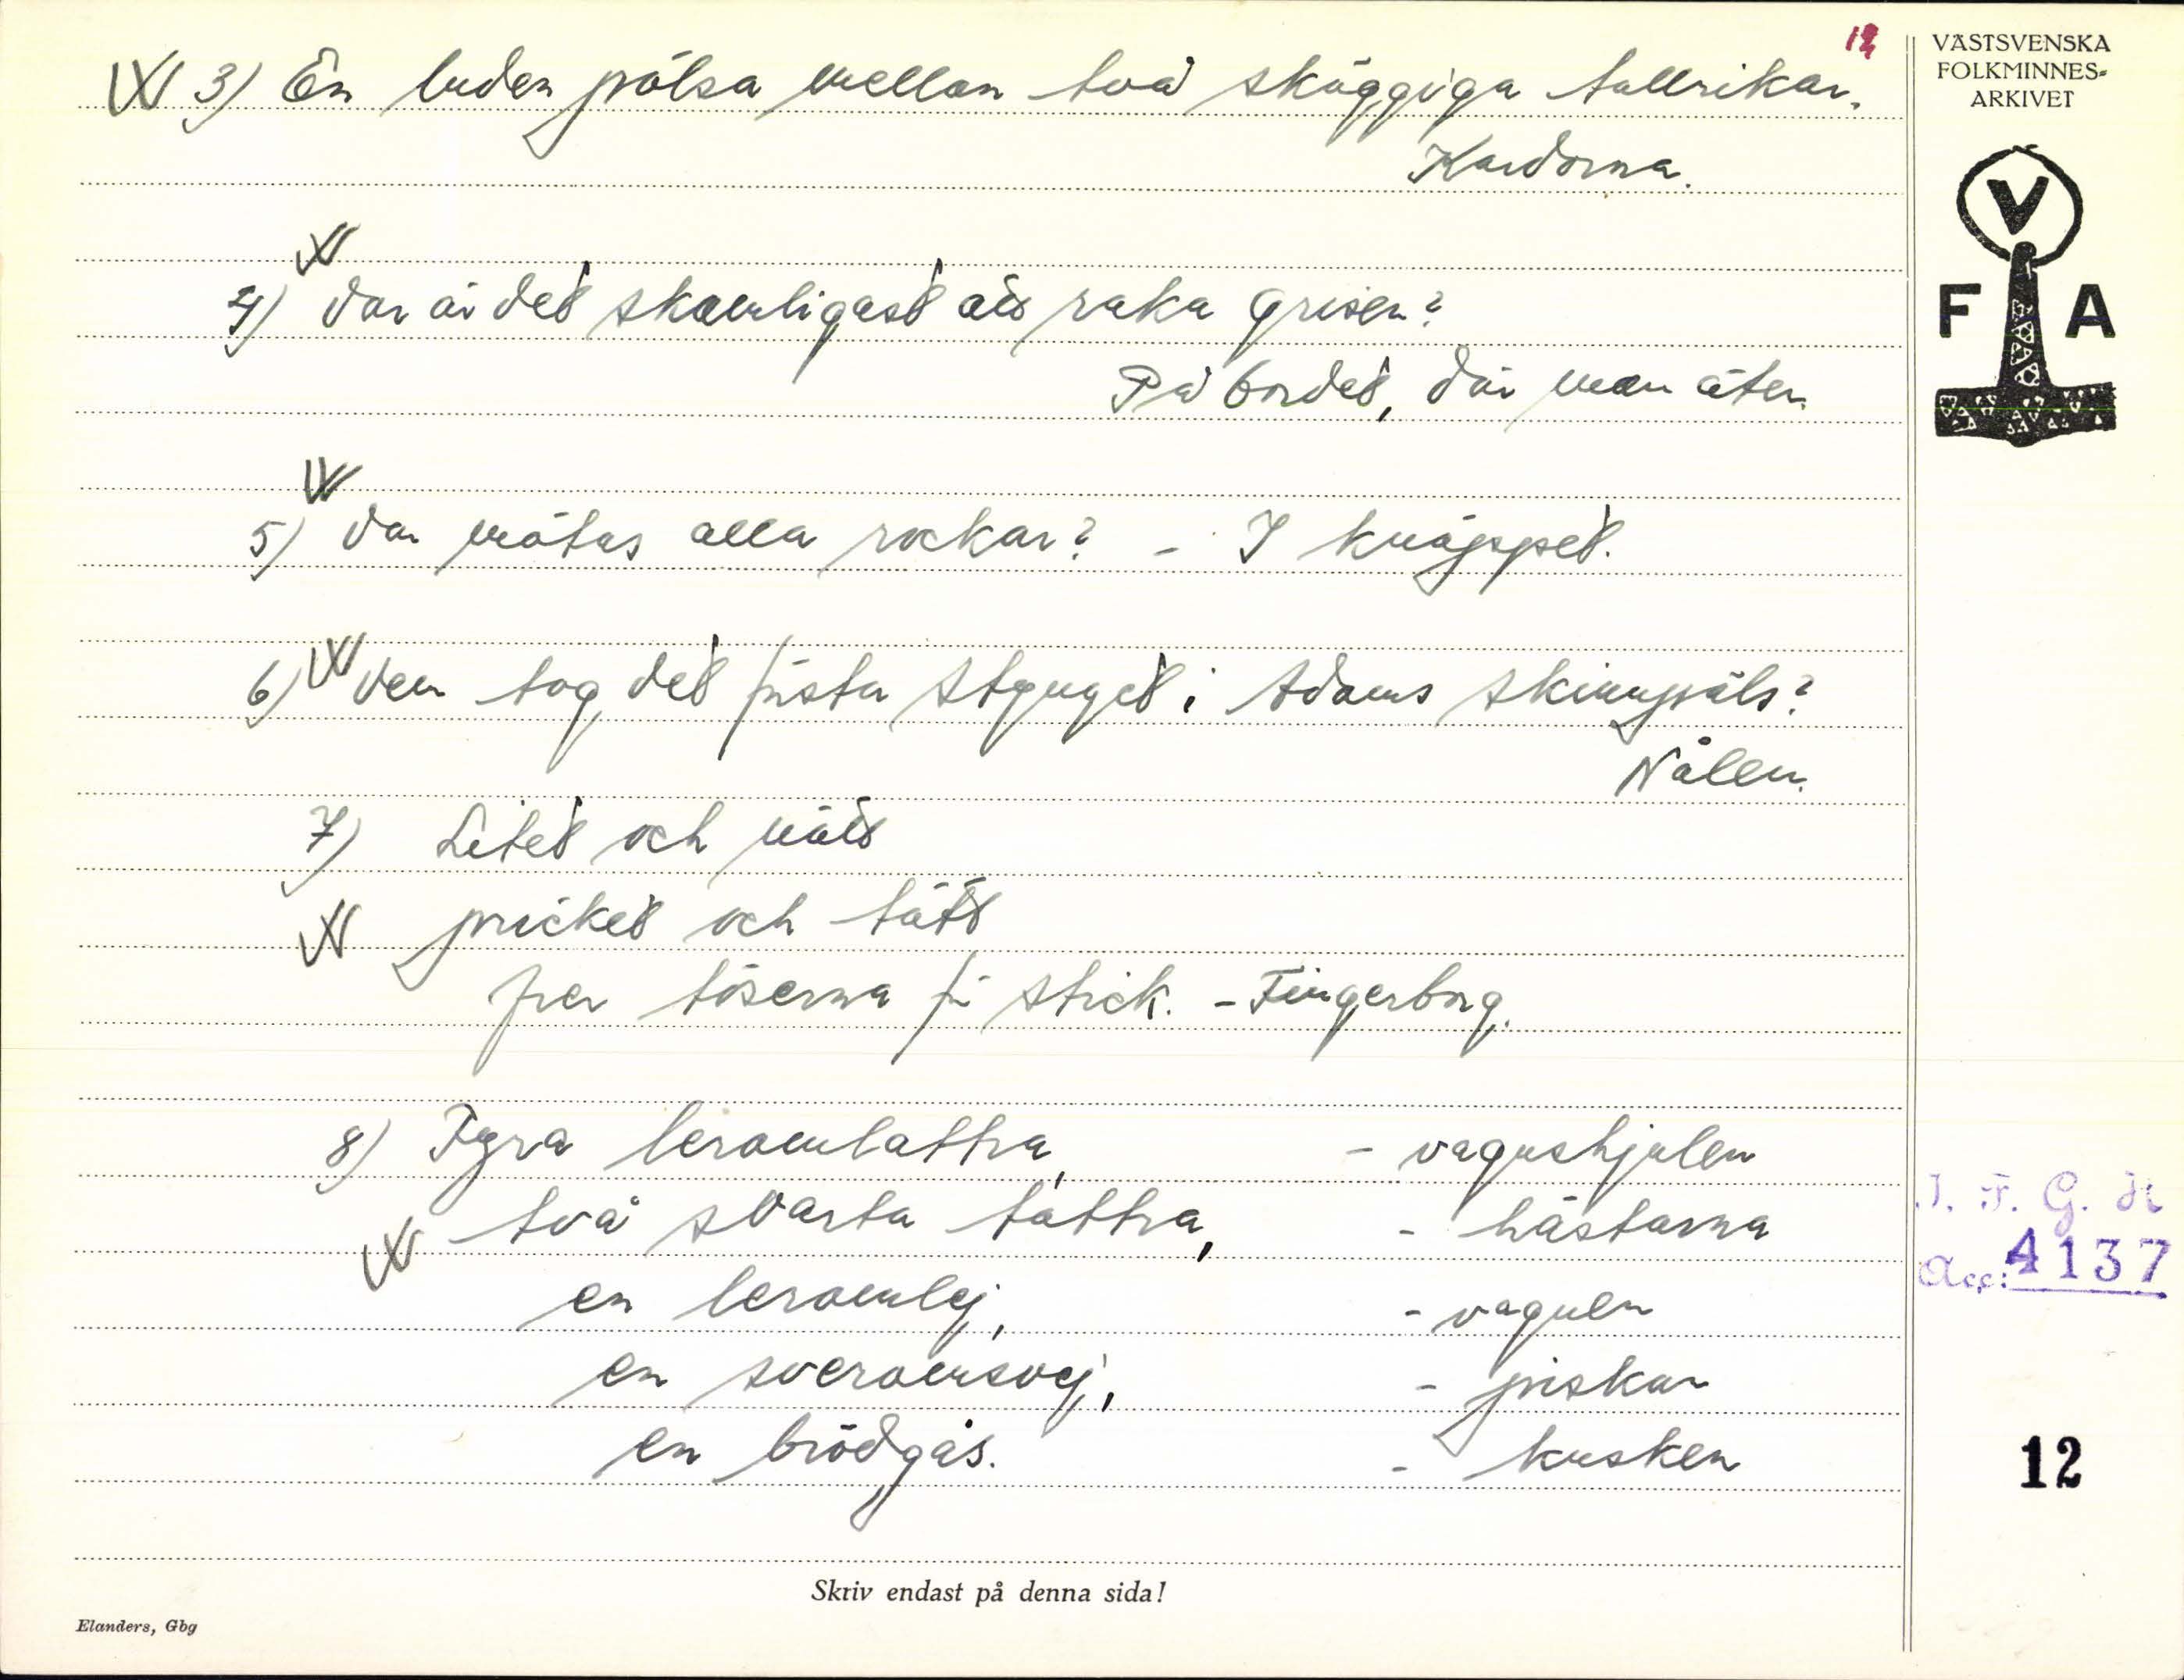 12
VÄSTSVENSKA
FOLKMINNES-
ARKIVET
V
F A
3) En luden pölsa mellan två skäggiga tallrikar.
Kardorna.
4) Var är det skamligast att raka grisen?
På bordet, där man äter.
5) Var mötas alla rockar? - I knäppet.
6) Vem tog det första stynget i Adams skinnpäls?
Nålen.
7) Litet och nätt
pricket och tätt
för töserna för stick. - Fingerborg.
8) Fyra leramlattra, - vagnshjulen
två svarta tattra, - hästarna
en leramlej, - vagnen
en sveramsvej, - piskan
en brödgås. - kusken
I. F. G. H
Acc: 4137
12
Skriv endast på denna sida!
Elanders, Gbg